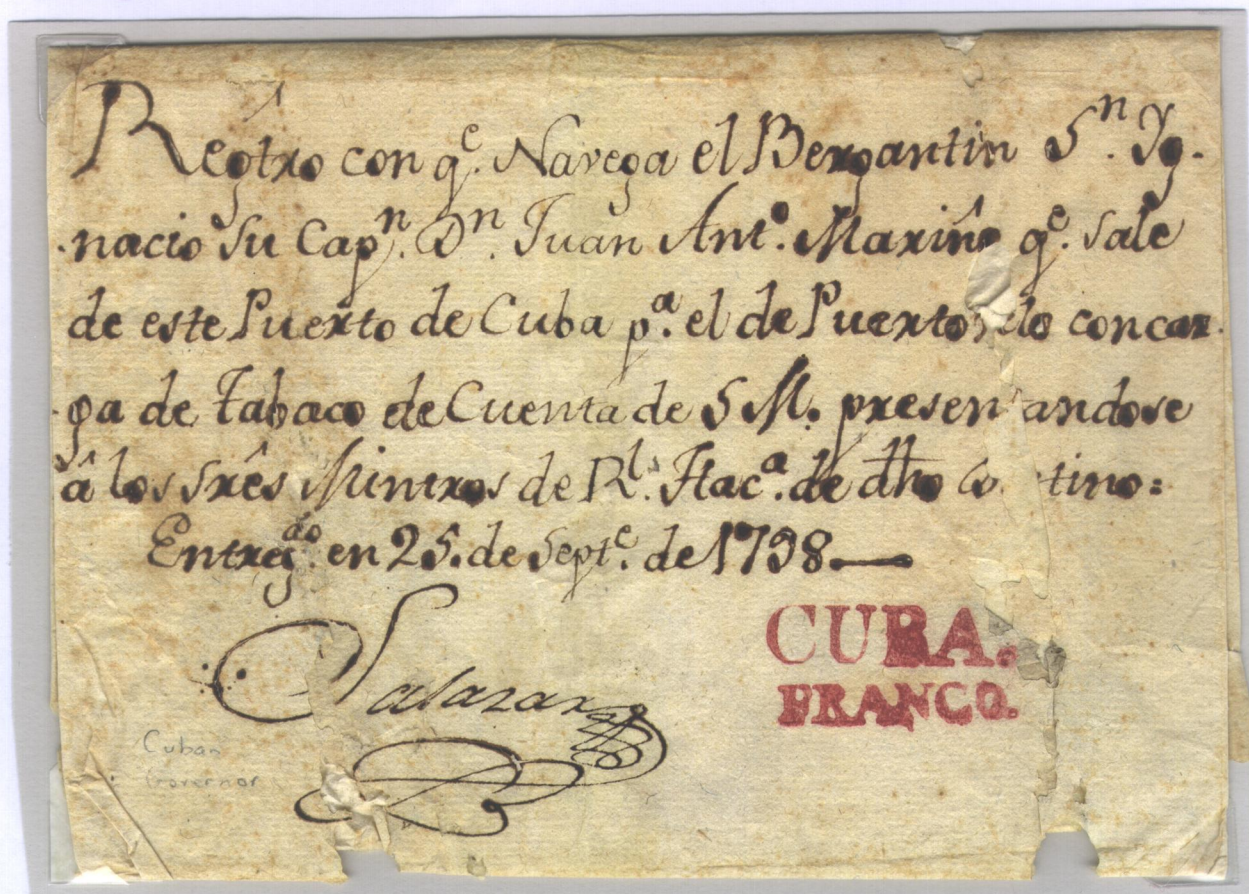 Regtro con qe. Navega el Bergantin Sn. Yg-
nacio Su Capn. Dn. Juan Anto. Mariño qe. Sale
de este Puerto de Cuba pa. el de Puertovelo con car-
ga de Tabaco de Cuenta de S M. presentandose
â los Srês Mintros de Rl. Haca. de dho
Entregdo. en 25. de Septe. de 1798.—
Salazar
CUBA.
FRANCO.
Cuban
Governor